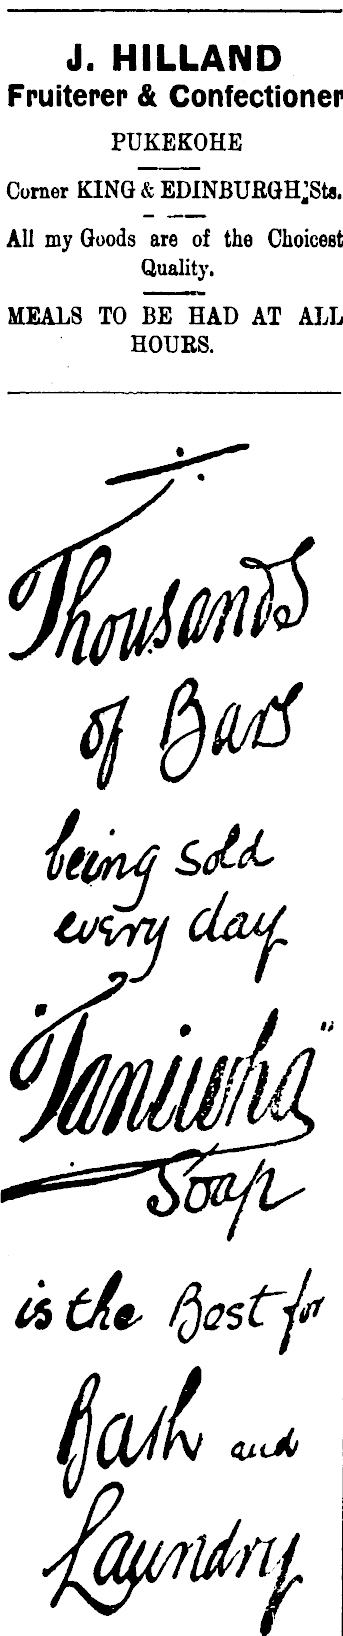 J. HILLAND
Fruiterer & Confectioner
PUKEKOHE
Corner KING & EDINBURGH, Sts.
All my Goods are of the Choicest
Quality.
MEALS TO BE HAD AT ALL
HOURS.
Thousands
of Bars
being sold
every day
"Taniwha"
Soap
is the Best for
Bath and
Laundry